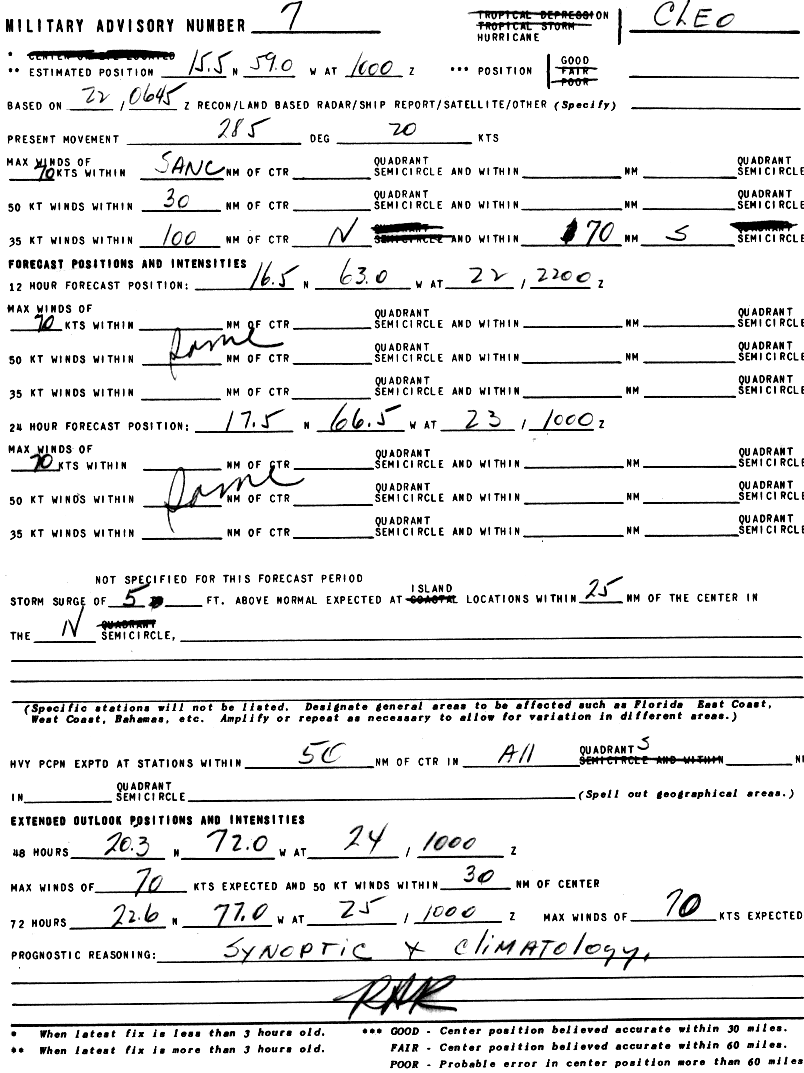 MILITARY ADVISORY NUMBER 7 TROPICAL DEPRESSION CLEO
TROPICAL STORM
HURRICANE
* CENTER
** ESTIMATED POSITION 15.5 N 59.0 W AT 1000 Z *** POSITION GOOD
FAIR
POOR
BASED ON 22 , 0645 Z RECON/LAND BASED RADAR/SHIP REPORT/SATELLITE/OTHER (Specify)
PRESENT MOVEMENT 285 DEG 20 KTS
MAX WINDS OF QUADRANT QUADRANT
70 KTS WITHIN SANC NM OF CTR SEMICIRCLE AND WITHIN NM SEMICIRCLE
QUADRANT QUADRANT
50 KT WINDS WITHIN 30 NM OF CTR SEMICIRCLE AND WITHIN NM SEMICIRCLE
35 KT WINDS WITHIN 100 NM OF CTR N SEMICIRCLE AND WITHIN 70 NM S SEMICIRCLE
FORECAST POSITIONS AND INTENSITIES
12 HOUR FORECAST POSITION: 16.5 N 63.0 W AT 22 , 2200 Z
MAX WINDS OF QUADRANT QUADRANT
70 KTS WITHIN NM OF CTR SEMICIRCLE AND WITHIN NM SEMICIRCLE
QUADRANT QUADRANT
50 KT WINDS WITHIN Same NM OF CTR SEMICIRCLE AND WITHIN NM SEMICIRCLE
QUADRANT QUADRANT
35 KT WINDS WITHIN NM OF CTR SEMICIRCLE AND WITHIN NM SEMICIRCLE
24 HOUR FORECAST POSITION: 17.5 N 66.5 W AT 23 , 1000 Z
MAX WINDS OF QUADRANT QUADRANT
70 KTS WITHIN NM OF CTR SEMICIRCLE AND WITHIN NM SEMICIRCLE
QUADRANT QUADRANT
50 KT WINDS WITHIN Same NM OF CTR SEMICIRCLE AND WITHIN NM SEMICIRCLE
QUADRANT QUADRANT
35 KT WINDS WITHIN NM OF CTR SEMICIRCLE AND WITHIN NM SEMICIRCLE
NOT SPECIFIED FOR THIS FORECAST PERIOD
ISLAND
STORM SURGE OF 5 FT. ABOVE NORMAL EXPECTED AT COASTAL LOCATIONS WITHIN 25 NM OF THE CENTER IN
THE N QUADRANT
SEMICIRCLE,
(Specific stations will not be listed. Designate general areas to be affected such as Florida East Coast,
West Coast, Bahamas, etc. Amplify or repeat as necessary to allow for variation in different areas.)
HVY PCPN EXPTD AT STATIONS WITHIN 50 NM OF CTR IN All QUADRANTS
SEMICIRCLE AND WITHIN
QUADRANT
IN SEMICIRCLE (Spell out geographical areas.)
EXTENDED OUTLOOK POSITIONS AND INTENSITIES
48 HOURS 20.3 N 72.0 W AT 24 , 1000 Z
MAX WINDS OF 70 KTS EXPECTED AND 50 KT WINDS WITHIN 30 NM OF CENTER
72 HOURS 22.6 N 77.0 W AT 25 , 1000 Z MAX WINDS OF 70 KTS EXPECTED
PROGNOSTIC REASONING: SYNOPTIC & CliMATology.
* When latest fix is less than 3 hours old. *** GOOD - Center position believed accurate within 30 miles.
** When latest fix is more than 3 hours old. FAIR - Center position believed accurate within 60 miles.
POOR - Probable error in center position more than 60 miles